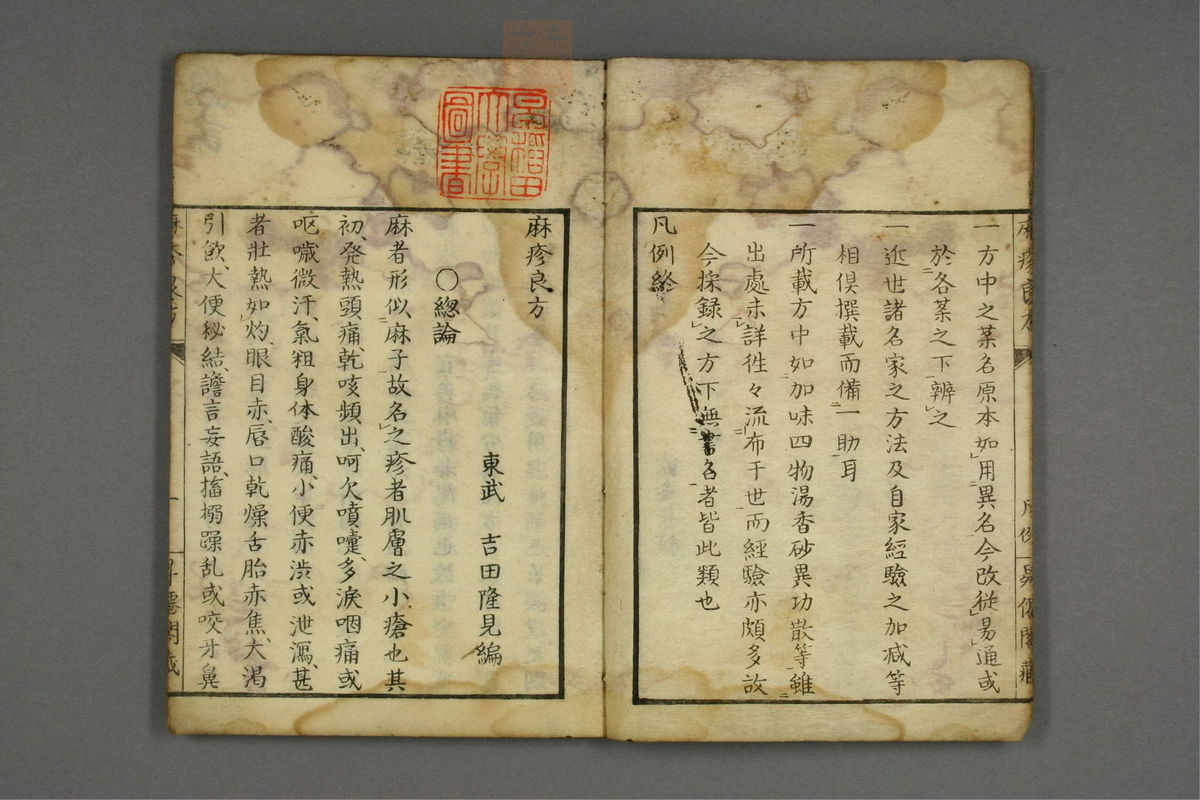 一方中之薬名原本如用異名今改従易通或
於各薬之下辨之
一近世諸名家之方法及自家経驗之加减等
相倶撰載而備一助耳
一所載方中如加味四物湯香砂異功散等雖
出處未詳徃々流布于世而経驗亦頗多故
今採録之方下無書名者皆此類也
凡例終
早稲田大學圖書
麻疹良方
東武 吉田隆見編
〇緫論
麻者形似麻子故名之疹者肌膚之小瘡也其
初発熱頭痛乾咳頻出呵欠噴嚏多涙咽痛或
呕噦微汗氣粗身体酸痛小便赤渋或泄瀉甚
者壯熱如灼眼目赤唇口乾燥舌胎赤焦大渇
引飲大便秘結譫言妄語搐搦躁乱或咬牙鼻